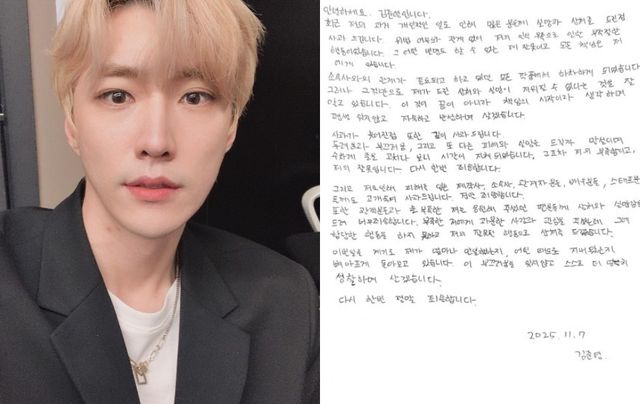 안녕하세요. 김준영입니다.
최근 저의 과거 개인적인 일로 인해 많은 분들께 실망과 상처를 드린점
사과 드립니다. 위법 여부와 관계 없이 저의 안일함으로 인한 부적절한
행동이었습니다. 그 어떤 변명도 할 수 없는 제 잘못이고 모든 책임은 저
에게 있습니다.
소속사와의 관계가 종료되고 하고 있던 모든 작품에서 하차하게 되었습니다.
그러나 그것만으로 제가 드린 상처와 실망이 지워질 수 없다는 것을 잘
알고 있습니다. 이 것이 끝이 아니라 책임의 시작이라 생각하며
평생 잊지않고 자숙하고 반성하며 살겠습니다.
사과가 늦어진점 또한 깊이 사과드립니다.
두려움과 부끄러움, 그리고 또 다른 피해와 실망을 드릴까 망설이며
수화게 글을 고치다 보니 시간이 지체 되었습니다. 그조차 저의 부족함이고,
저의 잘못입니다. 다시 한번 죄송합니다.
그리고 저로인해 피해를 입은 제작사분, 소속사, 관계자분들, 배우분들, 스태프분
들께도 고개숙여 사과드립니다. 정말 죄송합니다.
또한 관객분들과 부족한 저를 응원해 주셨던 팬분들께 상처와 실망감을
드려 너무 죄송합니다. 부족한 저에게 과분한 사랑과 관심을 주셨는데, 그에
합당한 행동을 하지 못하고 저의 잘못된 행동으로 상처를 드렸습니다.
이번일을 계기로 제가 얼마나 안일했는지, 어떤 태도로 지내왔는지
뼈아프게 돌아보고 있습니다. 이 부끄러움을 잊지않고 스스로 더 엄격히
성찰하며 살겠습니다.
다시 한번 정말 죄송합니다.
2025. 11. 7
김준영